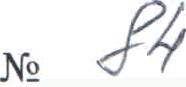 № 84